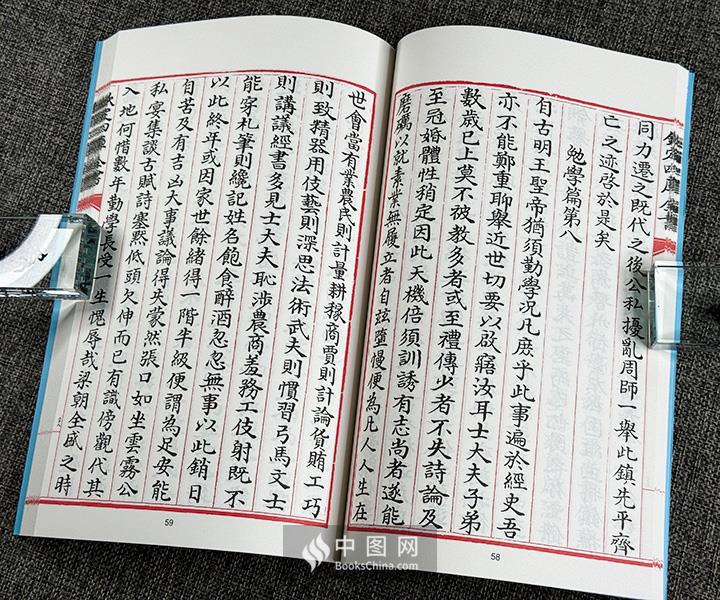 同力遷之既代之後公私擾亂周師一舉此鎮先平齊
亡之迹啓於是矣
勉學篇第八
自古明王聖帝猶須勤學况凡庶乎此事遍於經史吾
亦不能鄭重聊舉近世切要以啟寤汝耳士大夫子弟
數歲已上莫不被教多者或至禮傳少者不失詩論及
至冠婚體性稍定因此天機倍須訓誘有志尚者遂能
磨礪以就素業無履立者自兹墮慢便為凡人人生在
58
世會當有業農民則計量耕稼商賈則計論貨賄工巧
則致精器用伎藝則深思法術武夫則慣習弓馬文士
則講議經書多見士大夫恥涉農商羞務工伎射既不
能穿札筆則纔記姓名飽食醉酒忽忽無事以此銷日
以此終年或因家世餘緒得一階半級便謂為足安能
自苦及有吉凶大事議論得失蒙然張口如坐雲霧公
私宴集談古賦詩塞黙低頭欠伸而已有識傍觀代其
入地何惜數年勤學長受一生愧辱哉梁朝全盛之時
59
中图网
BooksChina.com